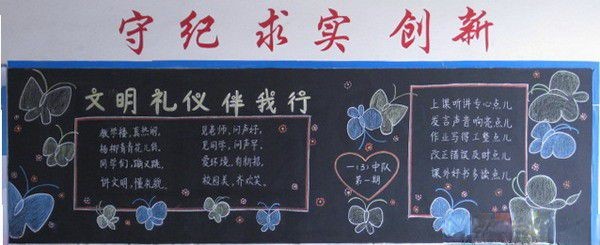 守纪 求实 创新
文明礼仪伴我行
教学楼,真热闹,
杨柳青青花儿俏,
同学们,蹦又跳,
讲文明,懂礼貌,
见老师,问声好,
见同学,问声早,
爱环境,有新招,
校园美,齐欢笑。
一(3)中队
第一期
上课听讲专心点儿
发言声音响亮点儿
作业写得工整点儿
改正错误及时点儿
课外好书多读点儿